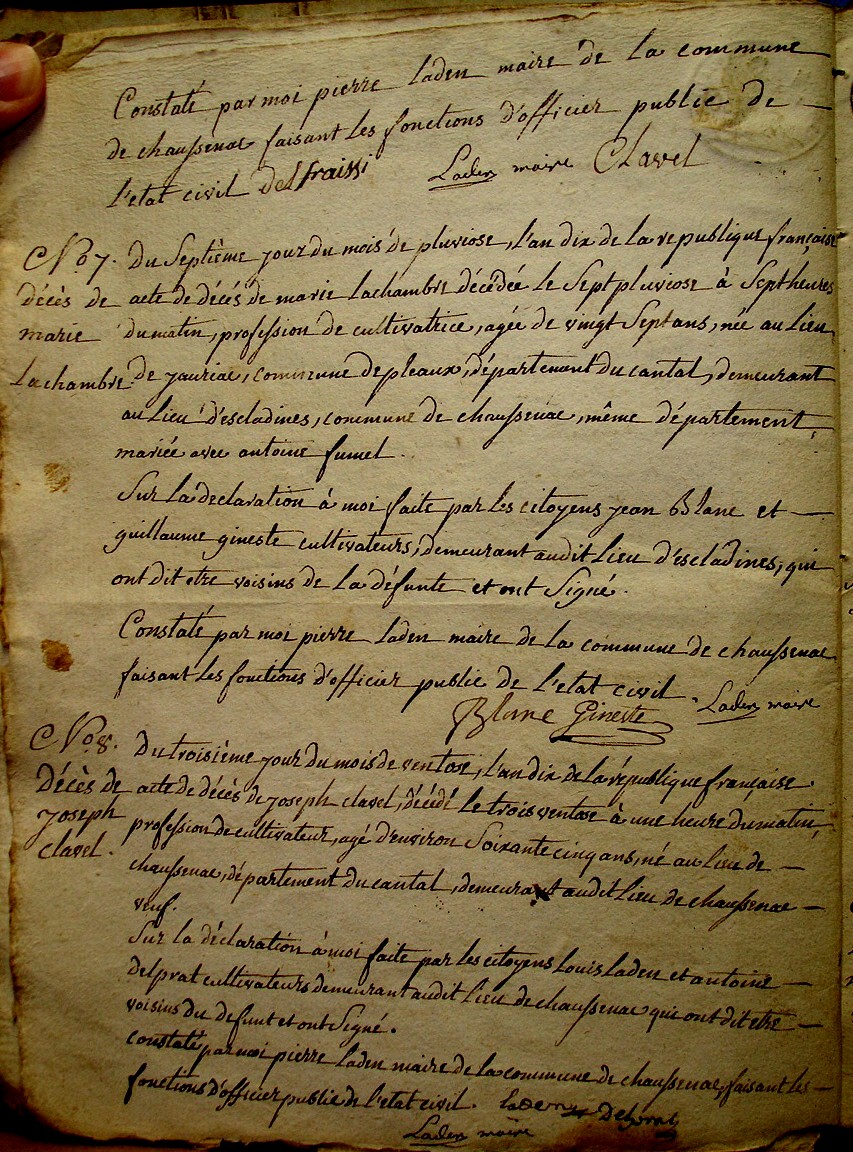 Constaté par moi pierre laden maire de la commune
de chaussenac faisant les fonctions d'officier public de —
l'etat civil delfraissi Laden maire Clavel
No. 7. Du Septième jour du mois de pluviose, l'an dix de la republique française
décès de acte de décés de marie lachambre décédée le Sept pluviose à Sept heures
marie du matin, profession de cultivatrice, agée de vingt Sept ans, née au Lieu
lachambre de jauriac, commune de pleaux, département du cantal, demeurant
au Lieu d'escladines, commune de chaussenac, même département,
mariée avec antoine fumel.
Sur la declaration à moi faite par les citoyens jean Blanc et —
guillaume gineste cultivateurs, demeurant audit Lieu d'escladines, qui
ont dit etre voisins de la défunte et ont Signé.
Constaté par moi pierre laden maire de la commune de chaussenac
faisant les fonctions d'officier public de l'etat civil. Laden maire
Blanc Gineste
No. 8. Du troisième jour du mois de ventose, l'an dix de la république française.
Décès de acte de décès de joseph clavel, décédé le trois ventose à une heure du matin,
joseph profession de cultivateur, agé d'environ Soixante cinq ans, né au lieu de —
clavel. chaussenac, département du cantal, demeurant audit Lieu de chaussenac —
veuf.
Sur la déclaration à moi faite par les citoyens Louis Laden et antoine —
delprat cultivateurs demeurant audit Lieu de chaussenac qui ont dit etre —
voisins du defunt et ont Signé.
constaté par moi pierre laden maire de la commune de chaussenac, faisant les —
fonctions d'officier public de l'etat civil. laden
Laden maire